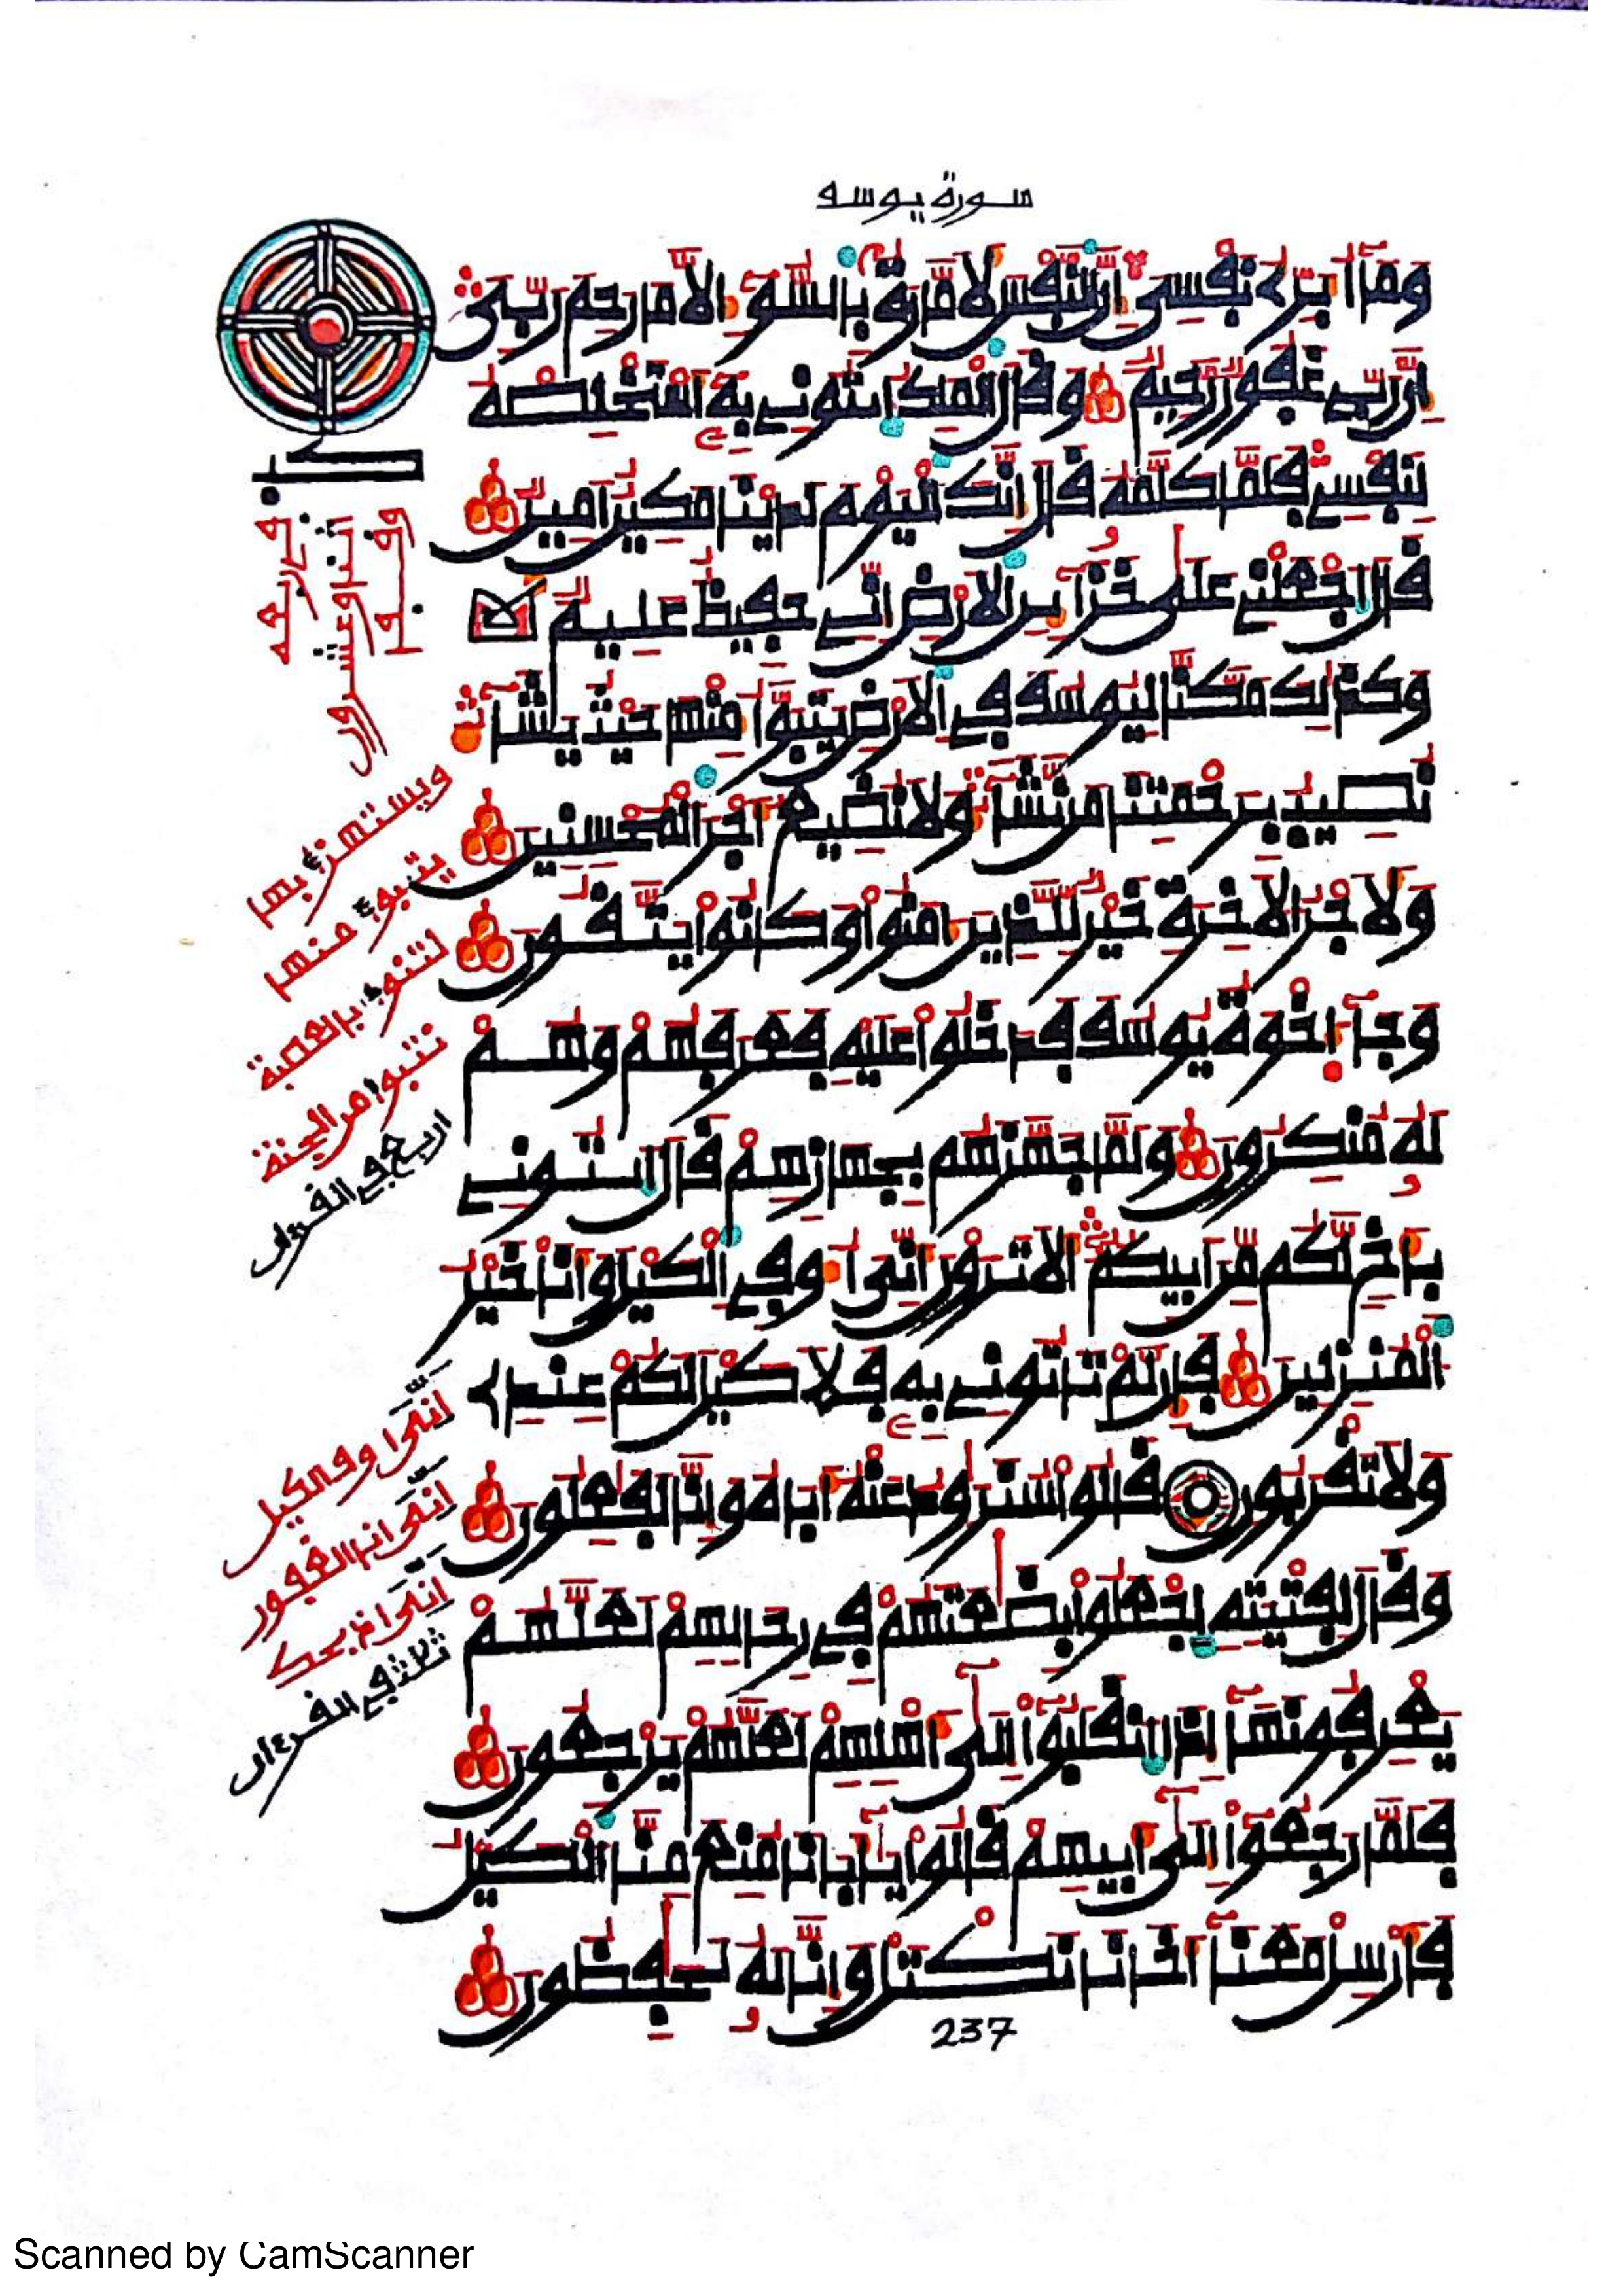 سورة يوسف
وَمَآ أُبَرِّئُ نَفْسِىَ إِنَّ النَّفْسَ لَأَمَّارَةٌ بِالسُّوٓءِ اِلَّا مَا رَحِمَ رَبِّىَ
إِنَّ رَبِّى غَفُورٌ رَّحِيمٌ وَقَالَ الْمَلِكُ ايتُونِى بِهِ أَسْتَخْلِصْهُ
لِنَفْسِى فَلَمَّا كَلَّمَهُ قَالَ إِنَّكَ الْيَوْمَ لَدَيْنَا مَكِينٌ اَمِينٌ
قَالَ اجْعَلْنِى عَلَى خَزَآئِنِ الْأَرْضِ إِنِّى حَفِيظٌ عَلِيمٌ
وَكَذَلِكَ مَكَّنَّا لِيُوسُفَ فِى الْأَرْضِ يَتَبَوَّأُ مِنْهَا حَيْثُ يَشَآءُ
نُصِيبُ بِرَحْمَتِنَا مَن نَّشَآءُ وَلَا نُضِيعُ أَجْرَ الْمُحْسِنِينَ
وَلَأَجْرُ الْأَخِرَةِ خَيْرٌ لِّلَّذِينَ ءَامَنُوا وَكَانُوا يَتَّقُونَ
وَجَآءَ اِخْوَةُ يُوسُفَ فَدَخَلُوا عَلَيْهِ فَعَرَفَهُمْ وَهُمْ
لَهُ مُنكِرُونَ وَلَمَّا جَهَّزَهُم بِجَهَازِهِمْ قَالَ ايتُونِى
بِأَخٍ لَّكُم مِّنَ اَبِيكُمُ أَلَا تَرَوْنَ أَنِّىَ أُوفِى الْكَيْلَ وَأَنَا خَيْرُ
الْمُنزِلِينَ فَإِن لَّمْ تَأْتُونِى بِهِ فَلَا كَيْلَ لَكُمْ عِندِى
وَلَا تَقْرَبُونِ قَالُوا سَنُرَاوِدُ عَنْهُ أَبَاهُ وَإِنَّا لَفَاعِلُونَ
وَقَالَ لِفِتْيَتِهِ اجْعَلُوا بِضَاعَتَهُمْ فِى رِحَالِهِمْ لَعَلَّهُمْ
يَعْرِفُونَهَآ إِذَا انقَلَبُوٓا إِلَىٓ أَهْلِهِمْ لَعَلَّهُمْ يَرْجِعُونَ
فَلَمَّا رَجَعُوٓا إِلَىٓ أَبِيهِمْ قَالُوا يَآأَبَانَا مُنِعَ مِنَّا الْكَيْلُ
فَأَرْسِلْ مَعَنَآ أَخَانَا نَكْتَلْ وَإِنَّا لَهُ لَحَافِظُونَ
237
ويستهزئ بها
يتبوء منها
لتنوء بالعصبة
نتبوأ من الجنة
اربع في القرءان
أنى اوف الكيل
أنى انا الغفور
أنى اذبحك
ثلاث في القرءان
Scanned by CamScanner